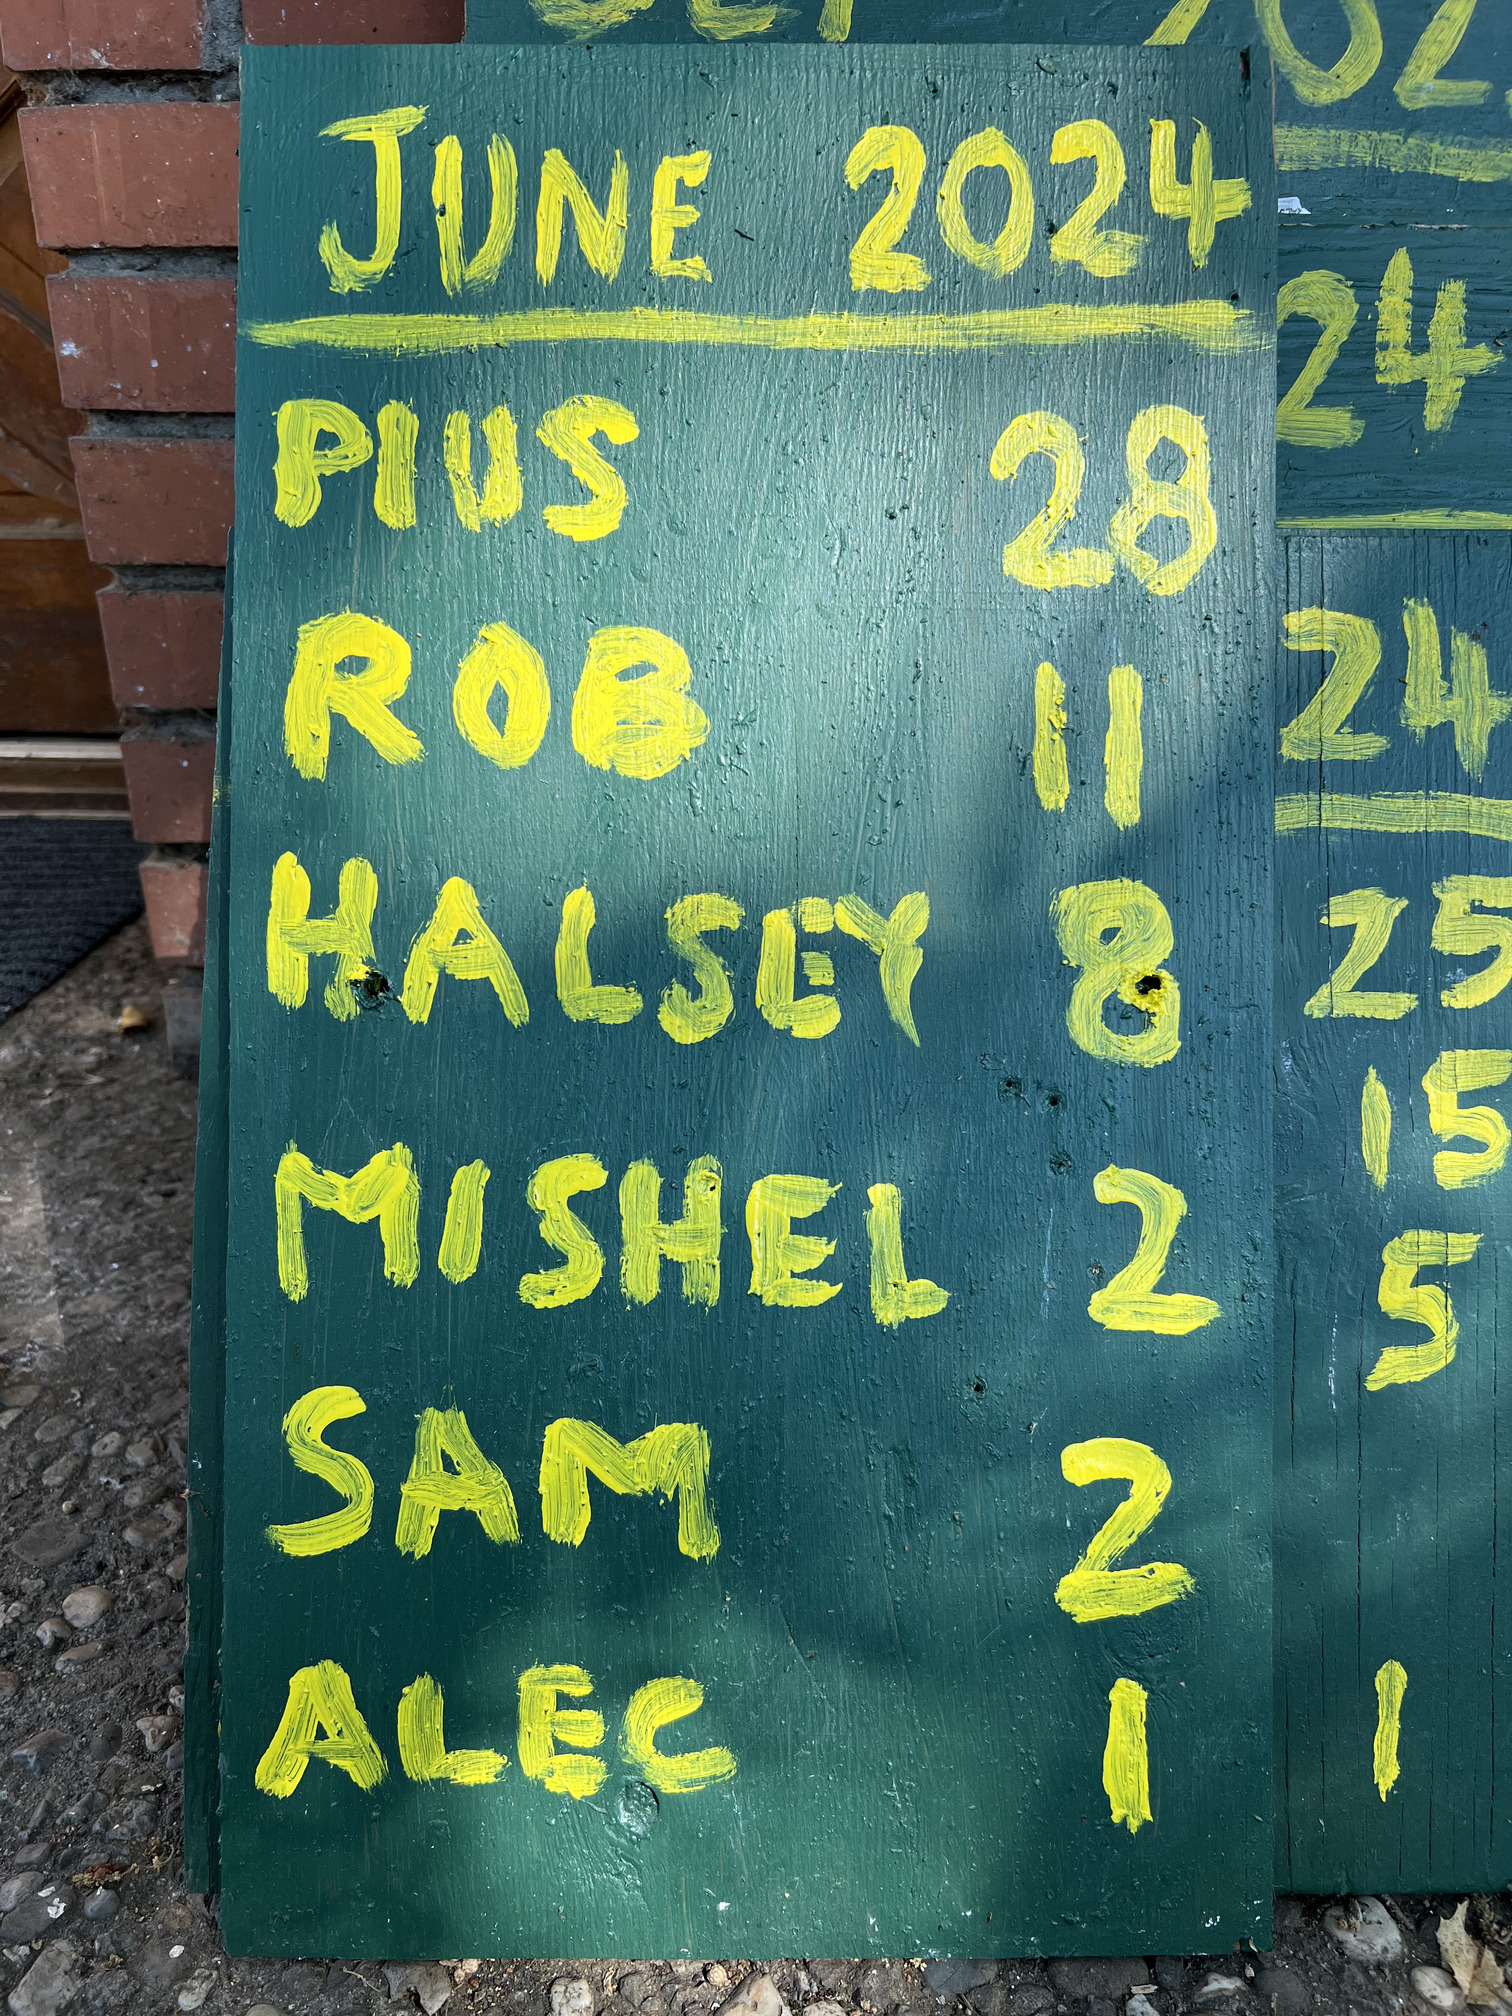 JUNE 2024
PIUS 28
ROB 11
HALSEY 8
MISHEL 2
SAM 2
ALEC 1
24
24
25
15
5
1